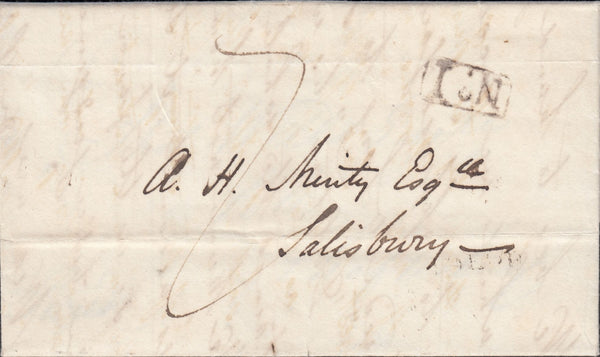 7
A. H. Minty Esq^re
Salisbury